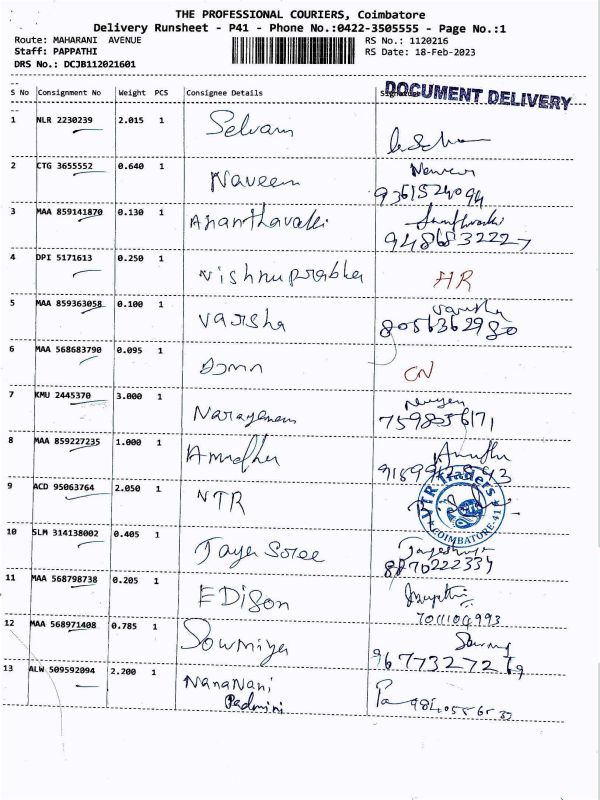 THE PROFESSIONAL COURIERS, Coimbatore
Delivery Runsheet - P41 - Phone No.:0422-3505555 - Page No.:1
Route: MAHARANI AVENUE
RS No.: 1120216
Staff: PAPPATHI
RS Date: 18-Feb-2023
DRS No.: DCJB112021601
S No Consignment No Weight PCS Consignee Details
DOCUMENT DELIVERY
1 NLR 2230239 2.015 1 Selvam
2 CTG 3655552 0.640 1 Naveen
9361524094
3 MAA 859141870 0.130 1 Ananthavalli
9486832227
4 DPI 5171613 0.250 1 Vishnuprabha HR
5 MAA 859363058 0.100 1 Varsha
8056362980
6 MAA 568683790 0.095 1 CN
7 KMU 2445370 3.000 1 Narayanan
8 MAA 859227235 1.000 1 Anudha
9 ACD 95063764 2.050 1 NTR
VTR Traders
COIMBATORE-41
10 SLM 314138002 0.405 1 Jaya Soree
8870222334
11 MAA 568798738 0.205 1 EDison
12 MAA 568971408 0.785 1 Sowmiya
13 ALW 509592094 2.200 1 NanaNani
Padmini